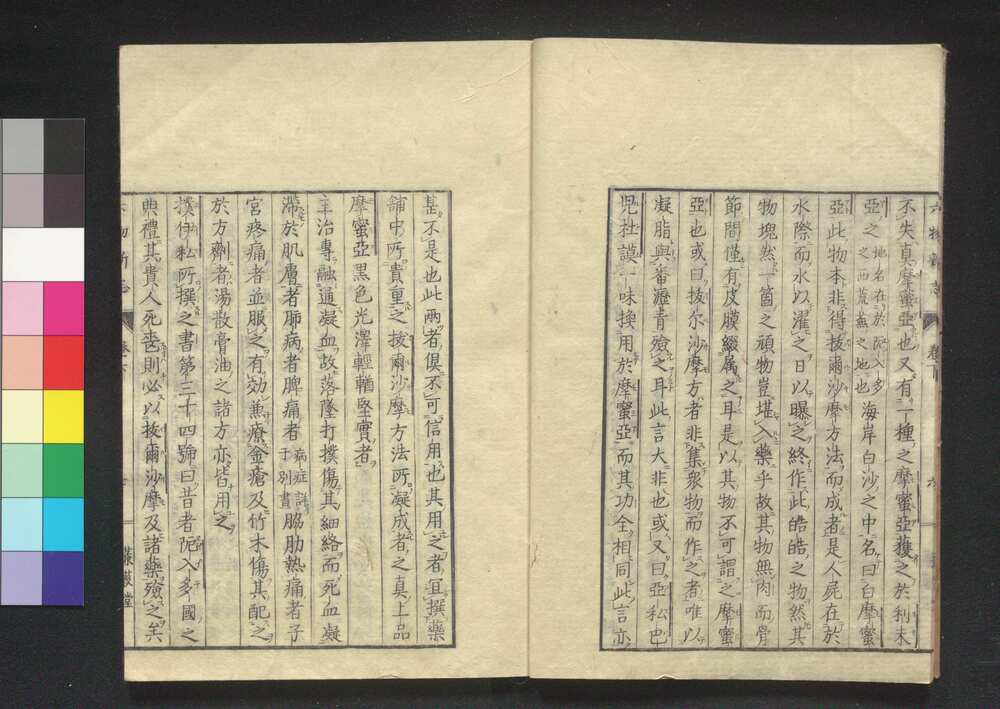 不失真摩蜜亞也又有一種之摩蜜亞蒦之於利未
亞之地名在於阨入多之西荒蕪之地也海岸白沙之中名曰白摩蜜
亞此物本非得拔爾沙摩方法而成者是人屍在於
水際而水以濯之日以曝之終作此皓皓之物然其
物塊然一箇之頑物豈堪入藥乎故其物無肉而骨
節間僅有皮膜綴属之耳是以其物不可謂之摩蜜
亞也或曰拔尔沙摩方者非集衆物而作之者唯以
凝脂與番瀝青殮之耳此言大非也或又曰亞私巴
児杜謨一味換用於摩蜜亞而其功全相同此言亦
甚不是也此兩者俱不可信用也其用之者宜撰藥
舗中所貴重之拔爾沙摩方法所凝成者之真上品
摩蜜亞黒色光澤輕鞧堅實者
主治專融通凝血故落墜打撲傷其細絡而死血凝
滞於肌膚者肺病者脾痛者病症詳于別書脇肋熱痛者子
宮疼痛者並服之有効兼療金瘡及竹木傷其配之
於方劑者湯散膏油之諸方亦皆用之
撲伊私所撰之書第三十四號曰昔者阨入多國之
典禮其貴人死喪則必以拔爾沙摩及諸藥殮之矣